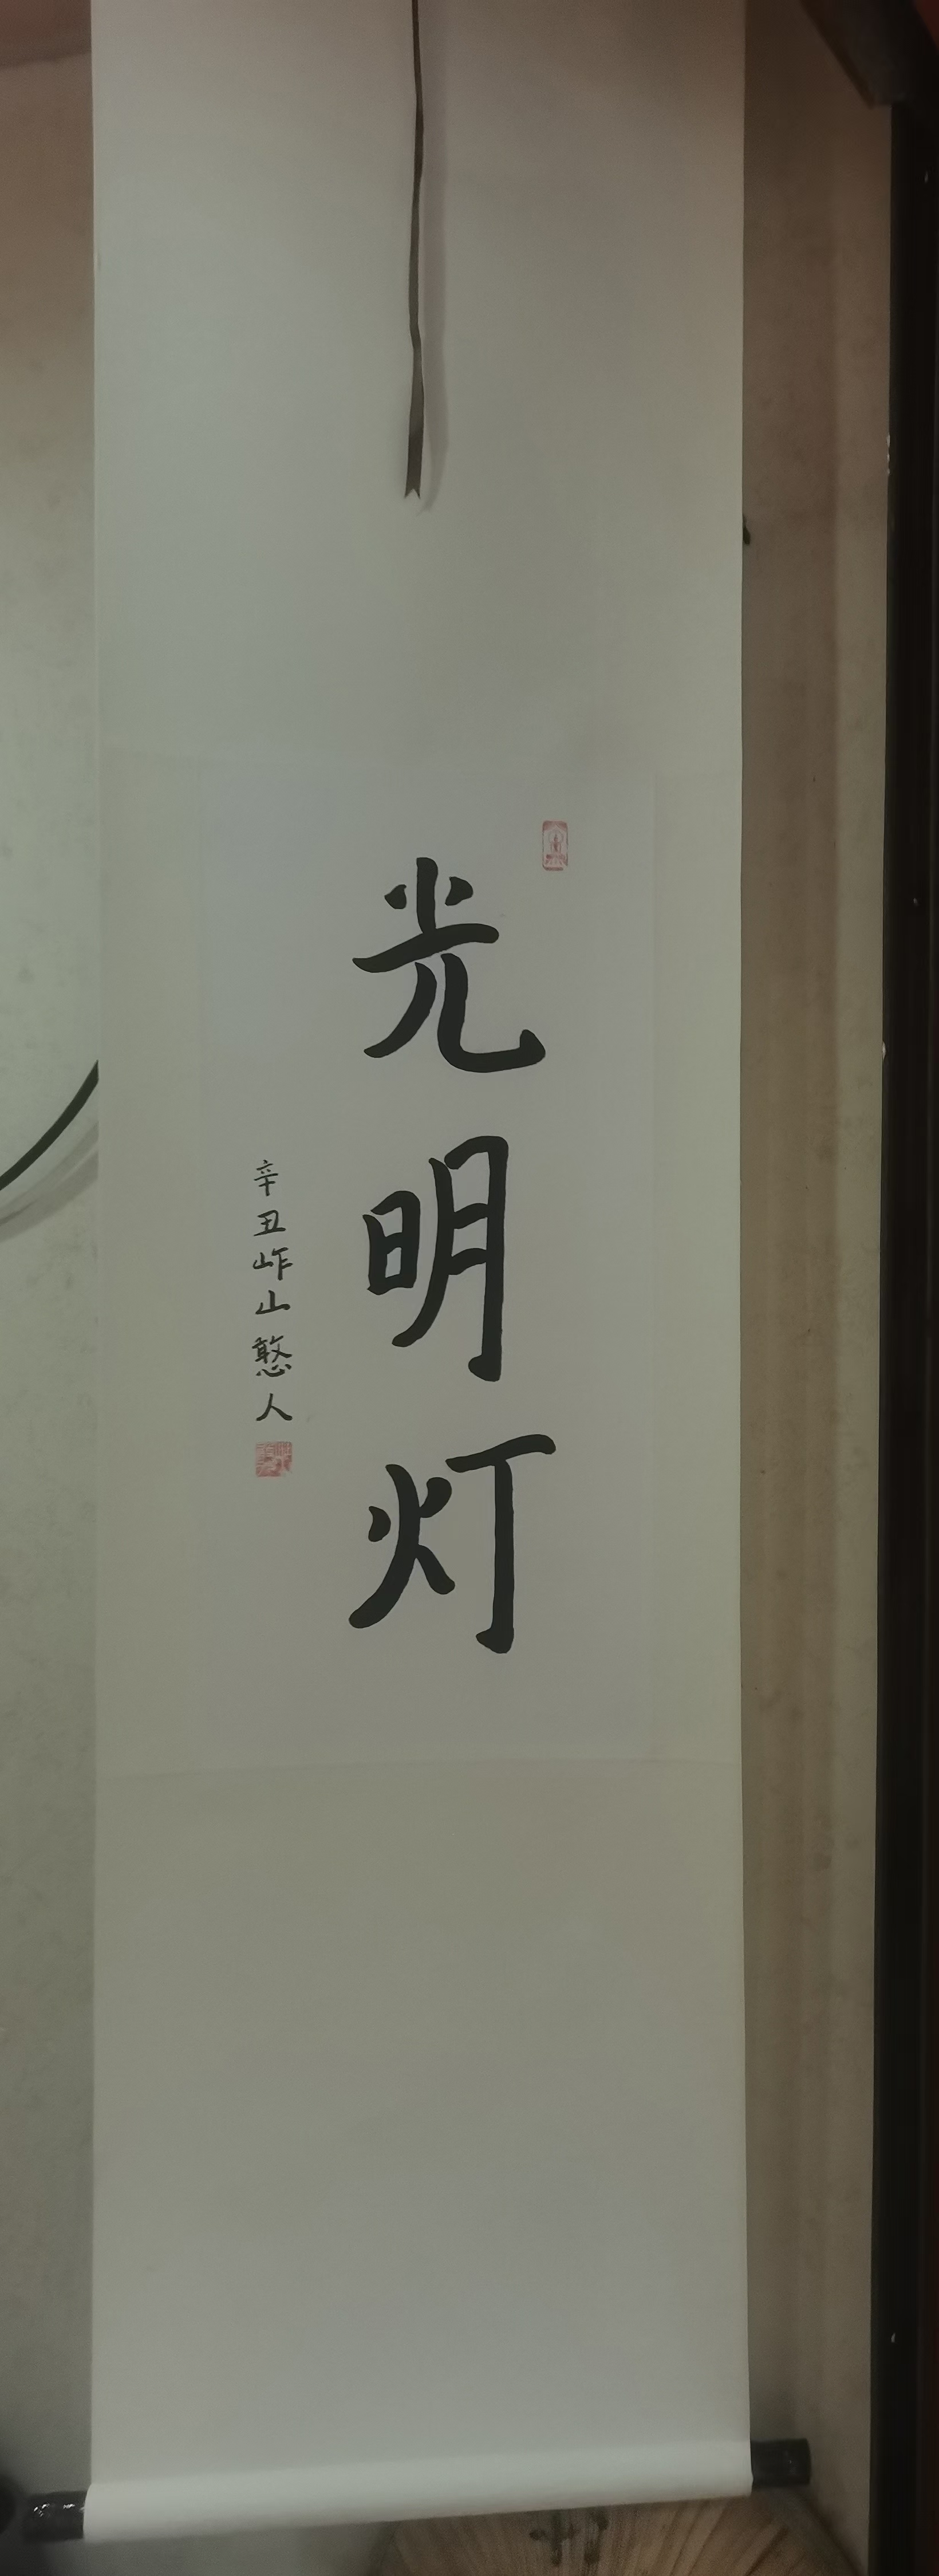 光明灯
辛丑岞山憨人